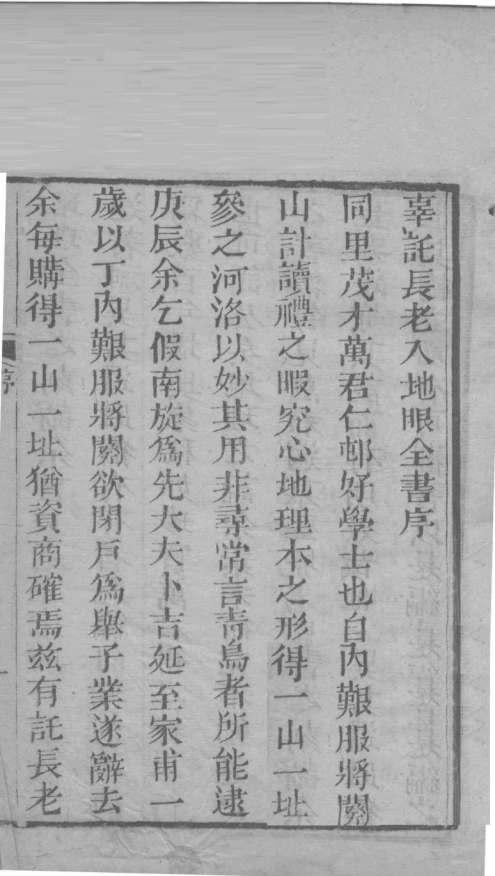 辜託長老入地眼全書序
同里茂才萬君仁邨好學士也自內艱服將闋
山計讀禮之暇究心地理本之形得一山一址
參之河洛以妙其用非尋常言青烏者所能逮
庚辰余乞假南旋爲先大夫卜吉延至家甫一
歲以丁內艱服將闋欲閉戶爲舉子業遂辭去
余每購得一山一址猶資商確焉兹有託長老
序